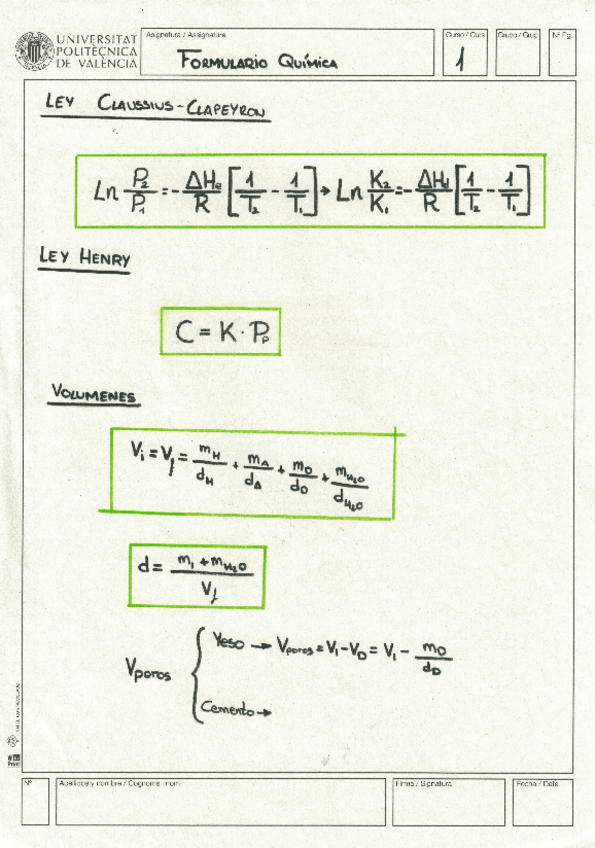 UNIVERSITAT
POLITÈCNICA
DE VALÈNCIA
Asignatura / Assignatura
FORMULARIO QUÍMICA
Curso / Curs
1
Grupo / Grup
Nº Pg.
LEY CLAUSSIUS-CLAPEYRON
Ln P₂/P₁ = - ΔHe/R [1/T₂ - 1/T₁] → Ln K₂/K₁ = - ΔHd/R [1/T₂ - 1/T₁]
LEY HENRY
C = K · Pp
VOLUMENES
Vi = Vf = mH/dH + mA/dA + mD/dD + mH₂O/dH₂O
d = m1 + mH₂O / Vf
Vporos { Yeso → Vporos = V1 - VD = V1 - mD/dD
Cemento →
Nº
Apellidos y nombre / Cognoms i nom
Firma / Signatura
Fecha / Data